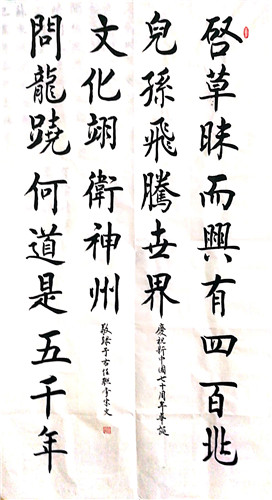 啓草昧而興有四百兆
兒孫飛騰世界
慶祝新中國七十周年華誕
問龍蹺何道是五千年
文化翊衛神州
敬錄于右任聯